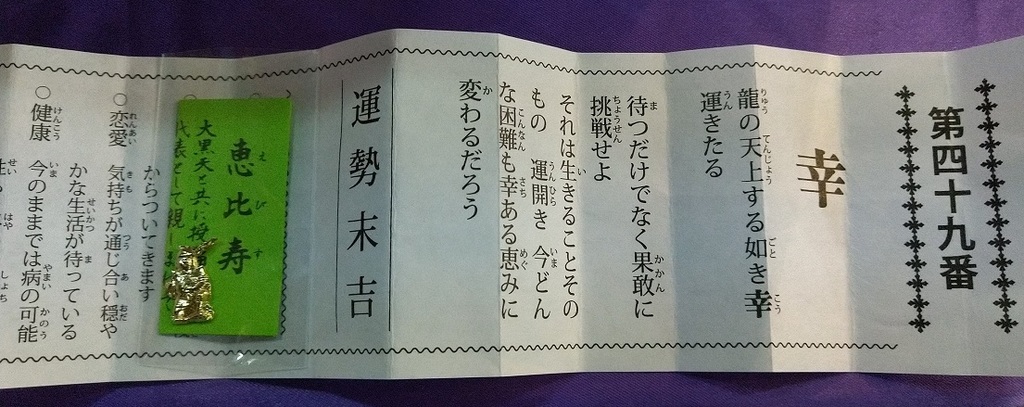 第四十九番
幸
龍の天上する如き幸
運きたる
待つだけでなく果敢に
挑戦せよ
それは生きることその
もの 運開き 今どん
な困難も幸ある恵みに
変わるだろう
運勢末吉
恵比寿
大黒天と共に授
代表として親
からついてきます
○恋愛 気持ちが通じ合い穏や
かな生活が待っている
○健康 今のままでは病の可能